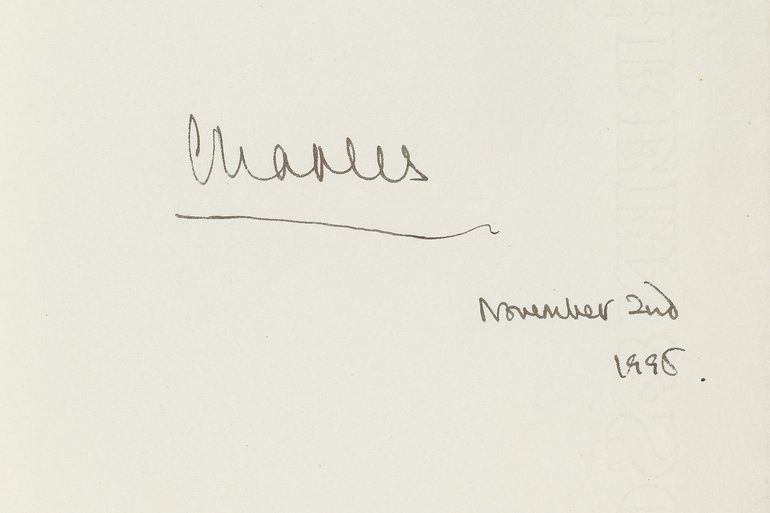 Charles
November 2nd
1996.